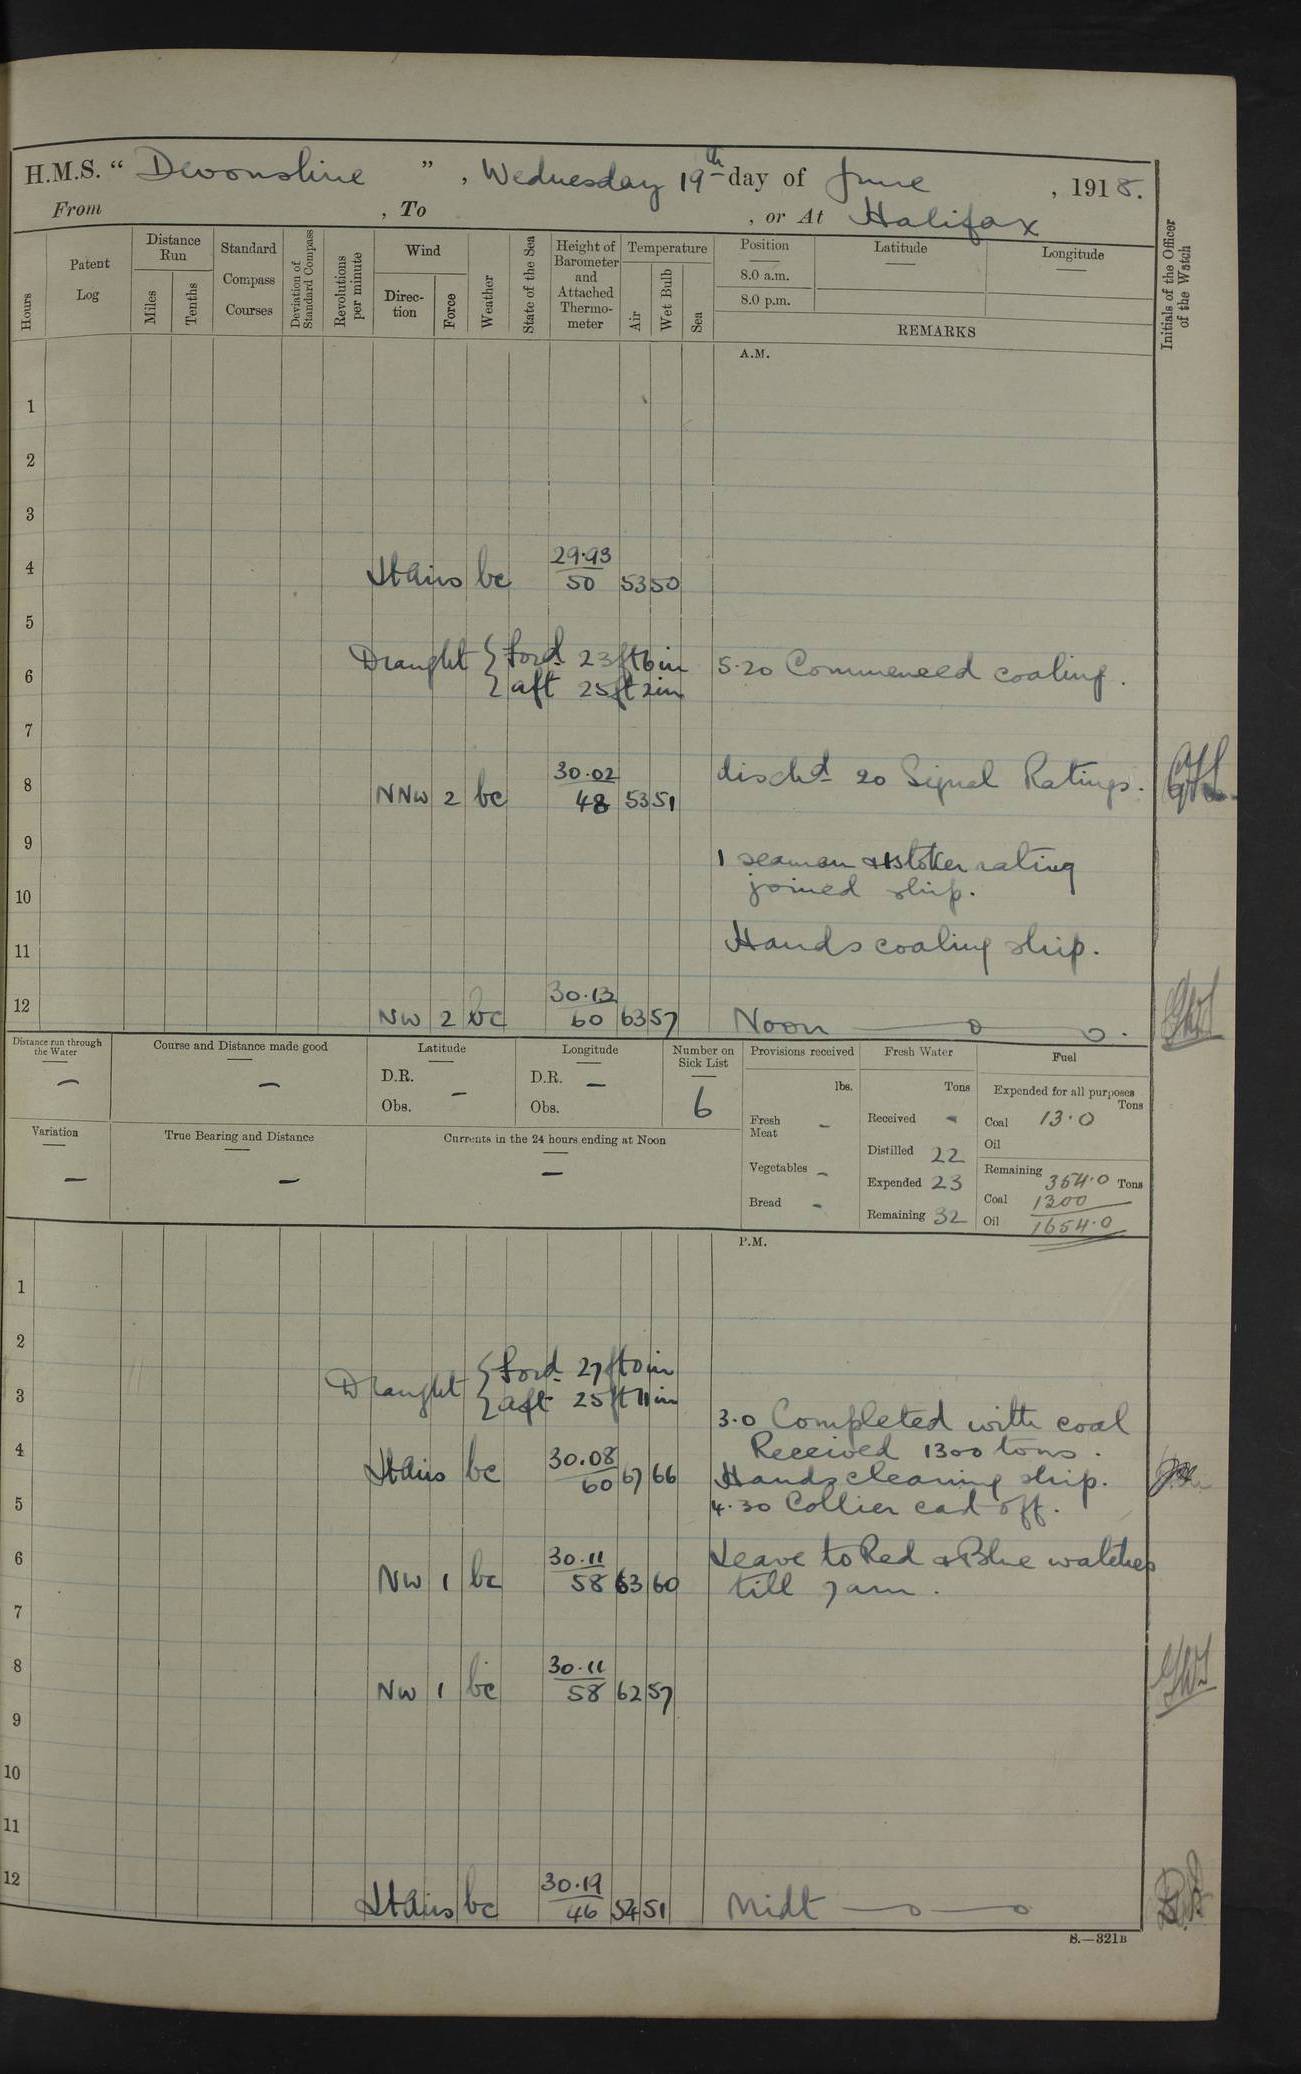 H.M.S. “ Devonshire ” , Wednesday 19th day of June , 1918.
From , To , or At Halifax
Hours
Patent Log
Distance Run
Miles
Tenths
Standard Compass Courses
Deviation of Standard Compass
Revolutions per minute
Wind
Direc-tion
Force
Weather
State of the Sea
Height of Barometer and Attached Thermo-meter
Temperature
Air
Wet Bulb
Sea
Position
8.0 a.m.
8.0 p.m.
Latitude
Longitude
REMARKS
Initials of the Officer of the Watch
A.M.
1
2
3
4 Lt Airs bc 29.93 / 50 53 50
5
Draught { ford. 23ft 6in
6 { aft 25ft 2in 5.20 Commenced coaling.
7
8 NNW 2 bc 30.02 / 48 53 51 dischd 20 Signal Ratings.
9 1 seaman & stoker rating
10 joined ship.
11 Hands coaling ship.
12 NW 2 bc 30.13 / 60 63 57 Noon
Distance run through the Water –
Course and Distance made good –
Latitude
D.R. –
Obs.
Longitude
D.R. –
Obs.
Number on Sick List
6
Provisions received
lbs.
Fresh Meat -
Vegetables -
Bread -
Fresh Water
Tons
Received -
Distilled 22
Expended 23
Remaining 32
Fuel
Expended for all purposes
Tons
Coal 13.0
Oil
Remaining 354.0 Tons
Coal 1300
Oil 1654.0
Variation –
True Bearing and Distance –
Currents in the 24 hours ending at Noon –
P.M.
1
2
Draught { ford. 27ft 0in
3 { aft 25ft 11in
3.0 Completed with coal
Received 1300 tons.
4 Lt Airs bc 30.08 / 60 67 66 Hands cleaning ship.
5 4.30 Collier cast off.
6 NW 1 bc 30.11 / 58 63 60 Leave to Red & Blue watches
till 7am.
7
8 NW 1 bc 30.11 / 58 62 57
9
10
11
12 Lt Airs bc 30.19 / 46 54 51 Midt
S.—321B